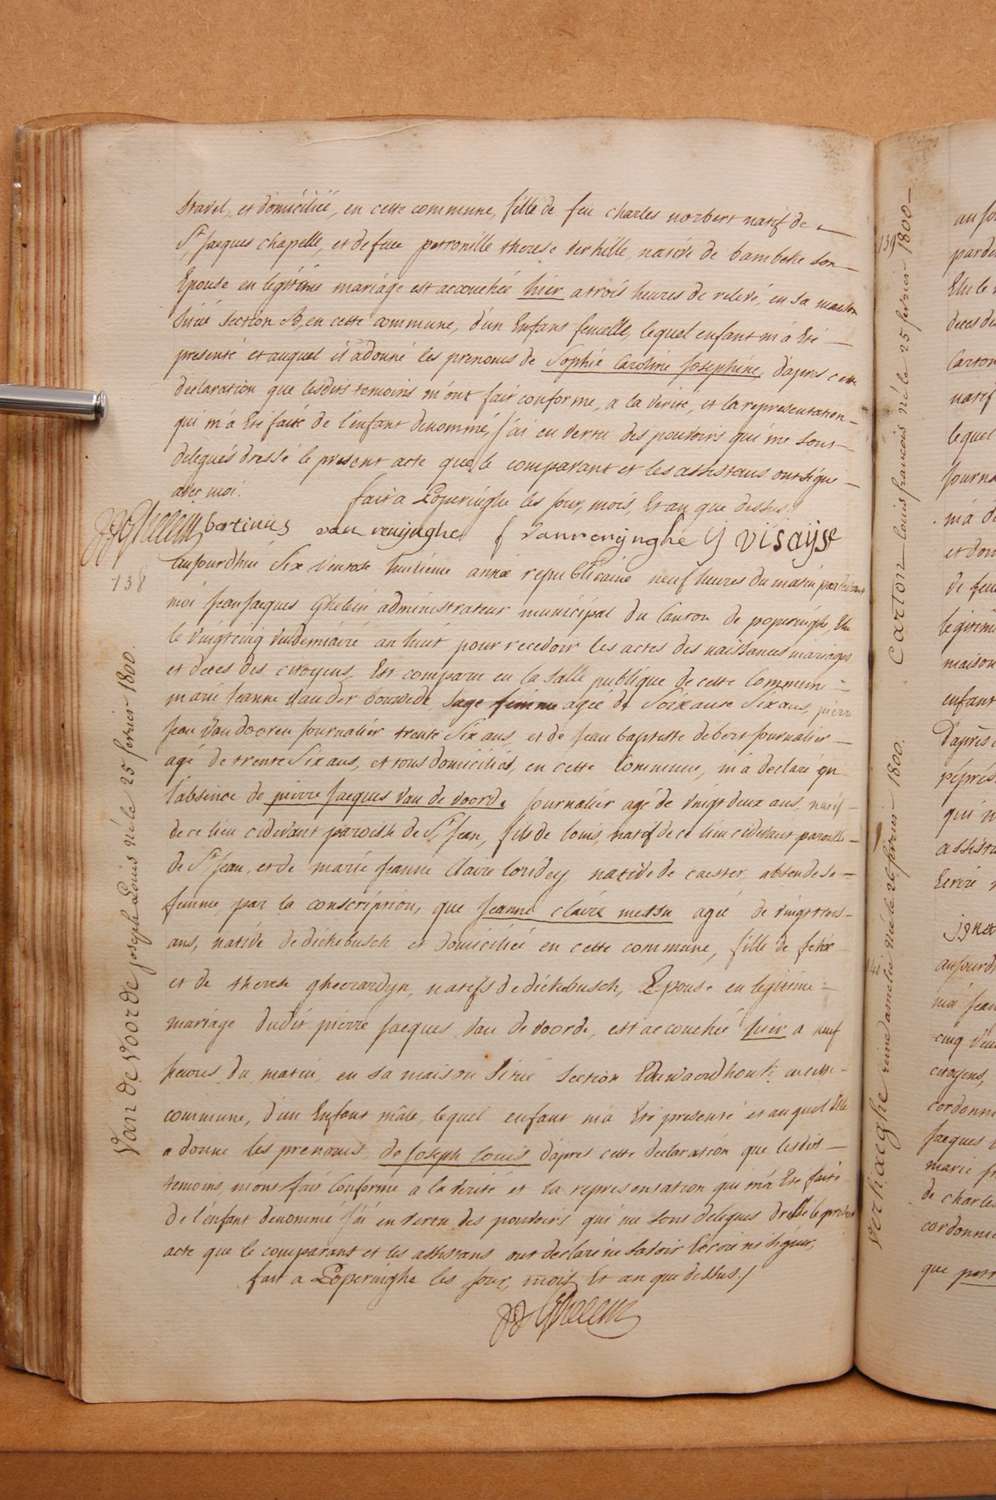 Stavel, et domiciliée, en cette commune, fille de feu charles norbert natif de
St Jacques chapelle, et de feue petronille therese verhille, native de bambeke son
Epouse en légitime mariage est accouchée hier a trois heures de relevé, en sa maison
située section B, en cette commune, d'un Enfans femelle, lequel enfant m'a Eté
presenté et auquel il a donné les prenoms de Sophie Caroline Josephine, d'apres cette
declaration que lesdits temoins m'ont fait conforme, a la verité, et la representation
qui m'a Eté faite de l'enfant denommé, j'ai en vertu des pouvoirs qui me sont
delegués dressé le present acte que le comparant et les assistans ont signé
avec moi.
fait a Poperinghe les jour, mois, Et an que dessus.
JJ Ghelein bertinus van renijnghe f vanrenijnghe y visaÿse
138
aujourdhui Six Ventose huitieme année republicaine neuf heures du matin pardevant
moi Jean Jacques Ghelein administrateur municipal du Canton de poperinghe, Elu
le vingt cinq vendemiaire an huit pour recevoir les actes des naissances mariages
et decès des citoyens, Est comparue en la salle publique de cette Commune
marie Jeanne Vander sage femme agée de Soixante Six ans, pierre
Jean Van dooren Journalier trente Six ans, et de Jean baptiste debert Journalier
agé de trente Six ans, et tous domiciliés, en cette Commune, m'a declaré qu'en
l'absence de pierre Jacques Van de Voorde Journalier agé de vingt deux ans natif
de ce lieu cidevant paroisse de St Jean, fils de louis, natif de ce lieu cidevant paroisse
de St Jean, et de marie Jeanne Claire natide de caester, absend de sa
femme par la conscription, que Jeanne claire agée de vingt trois
ans, native de dickebusch et domiciliée en cette commune, fille de felix
et de therese gheerardyn, natifs de dickebusch, Epouse en legitime
mariage dudit pierre Jacques Van de voorde, est accouchée hier a neuf
heures du matin en sa maison située section en cette
commune, d'un Enfant mâle, lequel enfant m'a Eté presenté et auquel Elle
a donné les prenoms de Joseph Louis d'apres cette declaration que lesdits
temoins m'ont fait Conforme a la verité et la representation qui m'a Eté faite
de l'enfant denommé j'ai en vertu des pouvoirs qui me sont delegués dressé le present
acte que le comparant et les assistans ont declaré ne savoir Ecrire ni signer,
fait a Poperinghe les jour, mois, Et an que dessus /
JJ Ghelein
Van de Voorde Joseph Louis né le 25 fevrier 1800.
139
Carton louis francois né le 25 fevrier 1800
Verhaeghe amelie née le 26 fevrier 1800.
declar
Carton
natif
lequel
Journa
m'a de
et don
de feu
legitime
maison
enfant
D'apres
représ
qui m
assista
Ecrire
aujourd
moi Jean
cinq Ven
citoyens,
cordonni
Jacques
marie fr
de charles
cordonnie
que